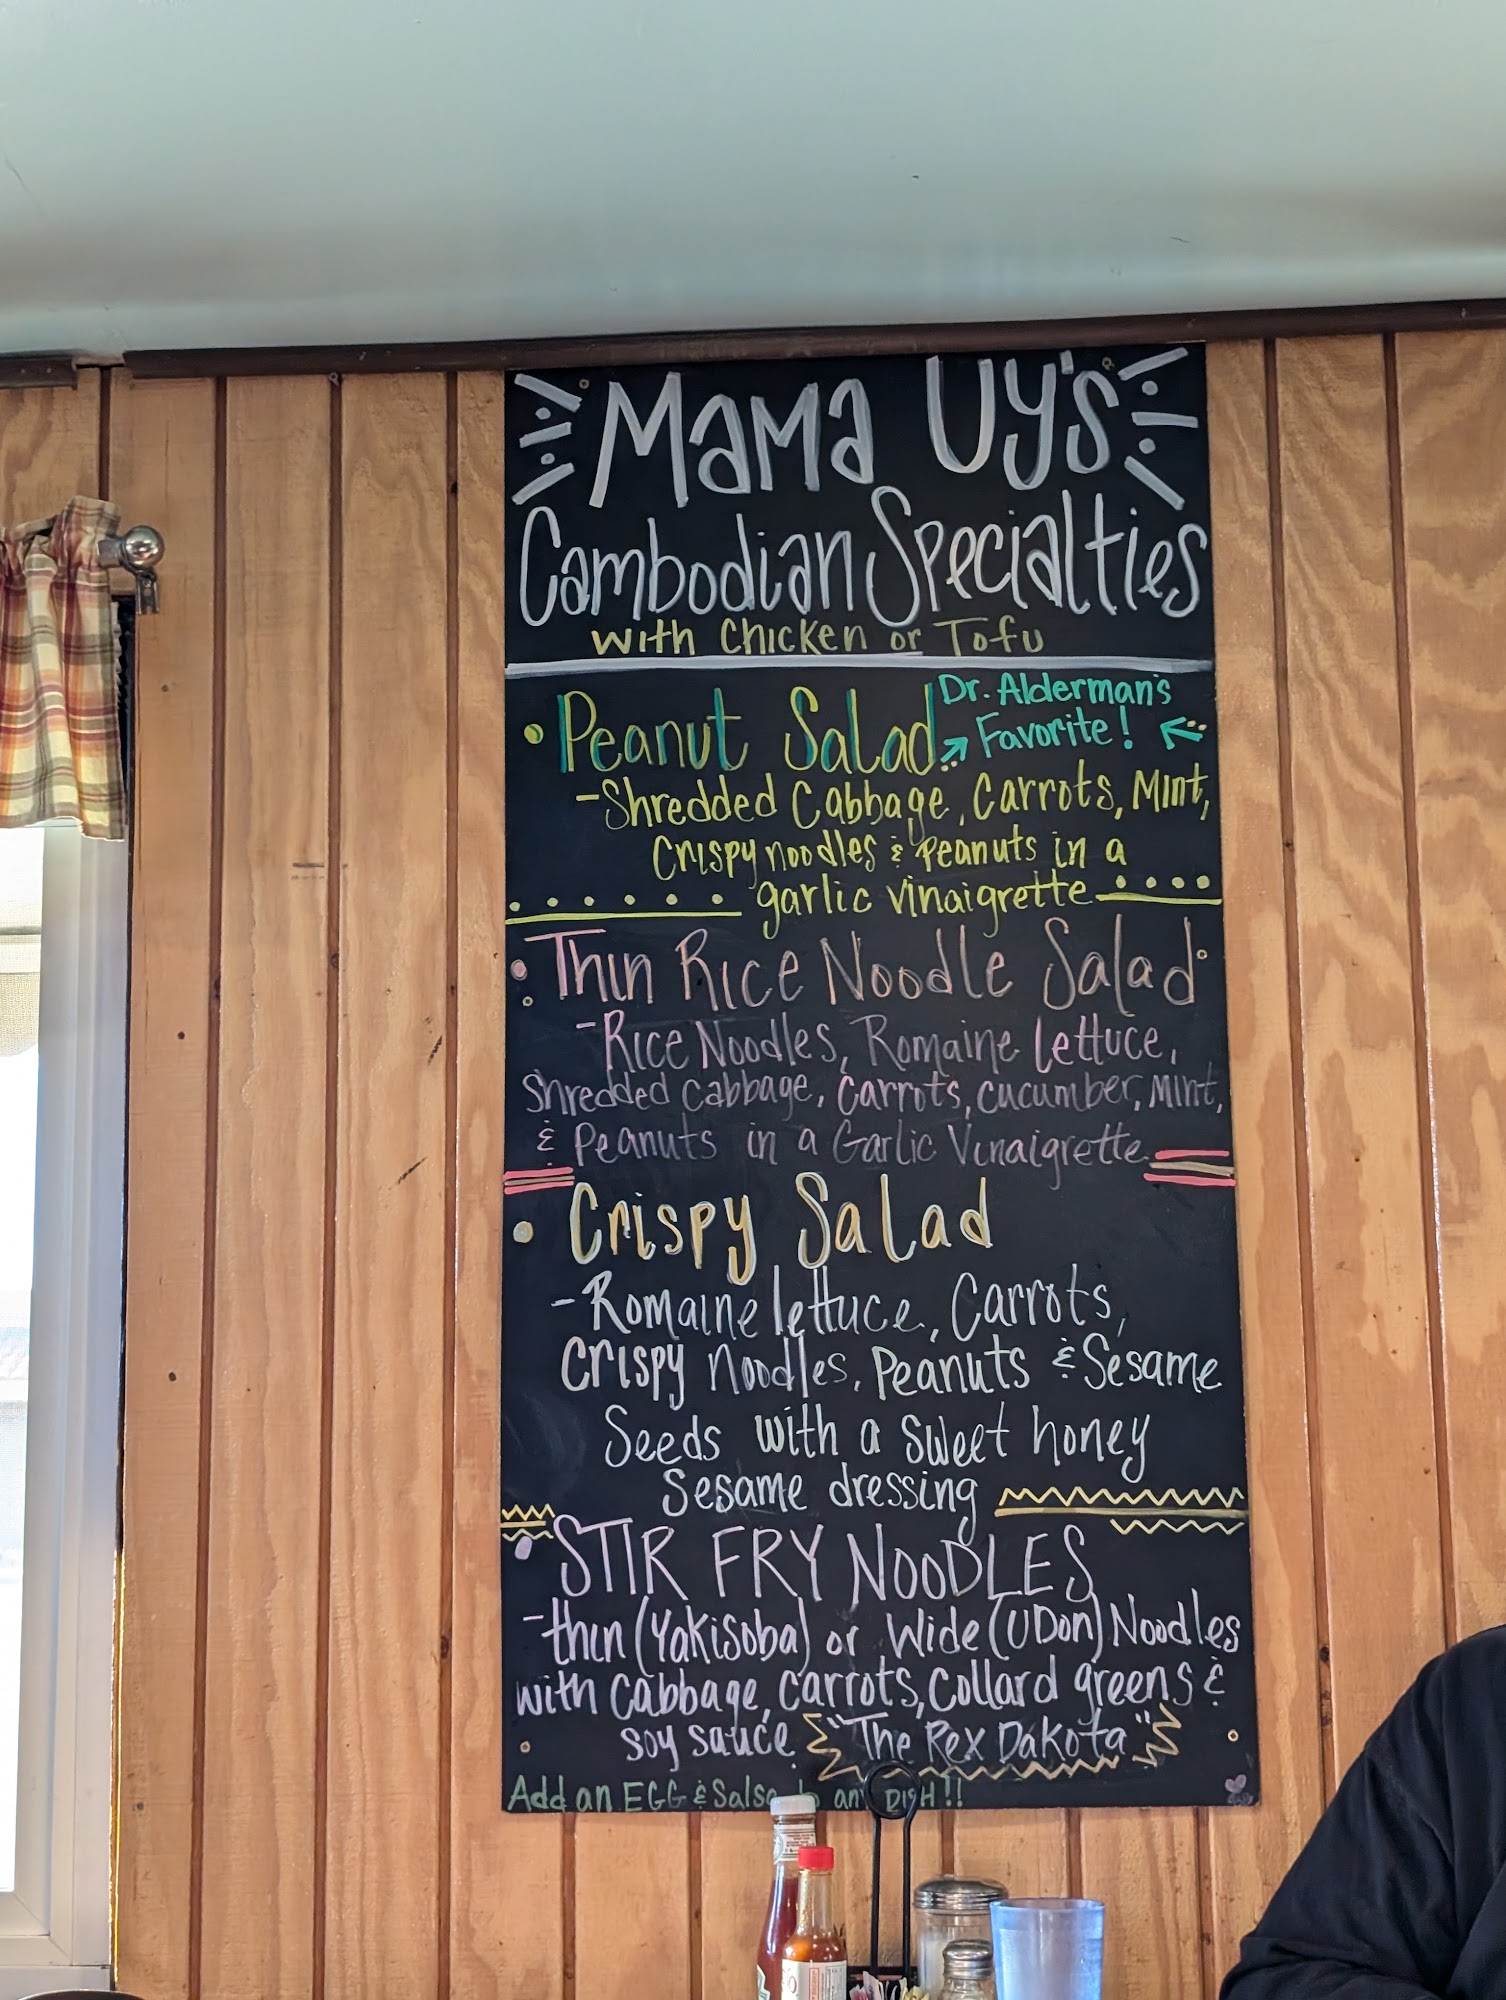 Mama Uy's
Cambodian Specialties
with Chicken or Tofu
Peanut Salad
Dr. Alderman's
Favorite!
- Shredded Cabbage, Carrots, Mint,
Crispy noodles & Peanuts in a
garlic vinaigrette
Thin Rice Noodle Salad
- Rice Noodles, Romaine lettuce,
Shredded cabbage, Carrots, cucumber, Mint,
& Peanuts in a Garlic Vinaigrette
Crispy Salad
- Romaine lettuce, Carrots,
Crispy noodles, Peanuts & Sesame
Seeds with a sweet honey
Sesame dressing
STIR FRY NOODLES
- thin (Yakisoba) or Wide (UDon) Noodles
with cabbage, carrots, collard greens &
soy sauce "The Rex Dakota"
Add an EGG & Salsa any DISH!!